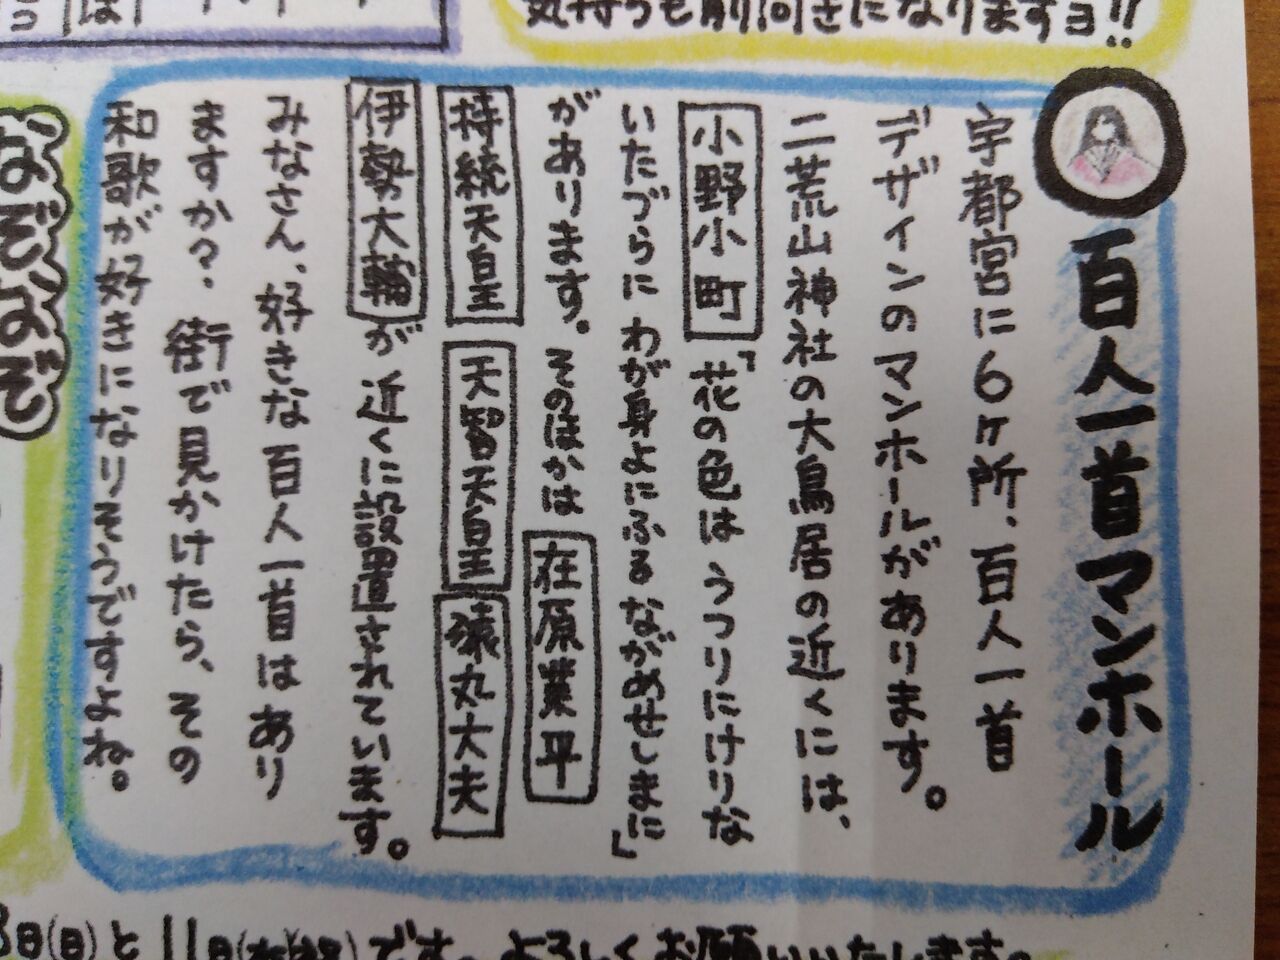 気持ちも前向きになりますヨ!!
百人一首マンホール
宇都宮に6ヶ所、百人一首
デザインのマンホールがあります。
二荒山神社の大鳥居の近くには、
小野小町「花の色は うつりにけりな
いたづらに わが身よにふる ながめせしまに」
があります。そのほかは 在原業平
持統天皇 天智天皇 猿丸大夫
伊勢大輔が 近くに設置されています。
みなさん、好きな百人一首は あり
ますか?街で見かけたら、その
和歌が好きになりそうですよね。
なぞなぞ
日(日)と11日(木・祝)です。よろしくお願いいたします。